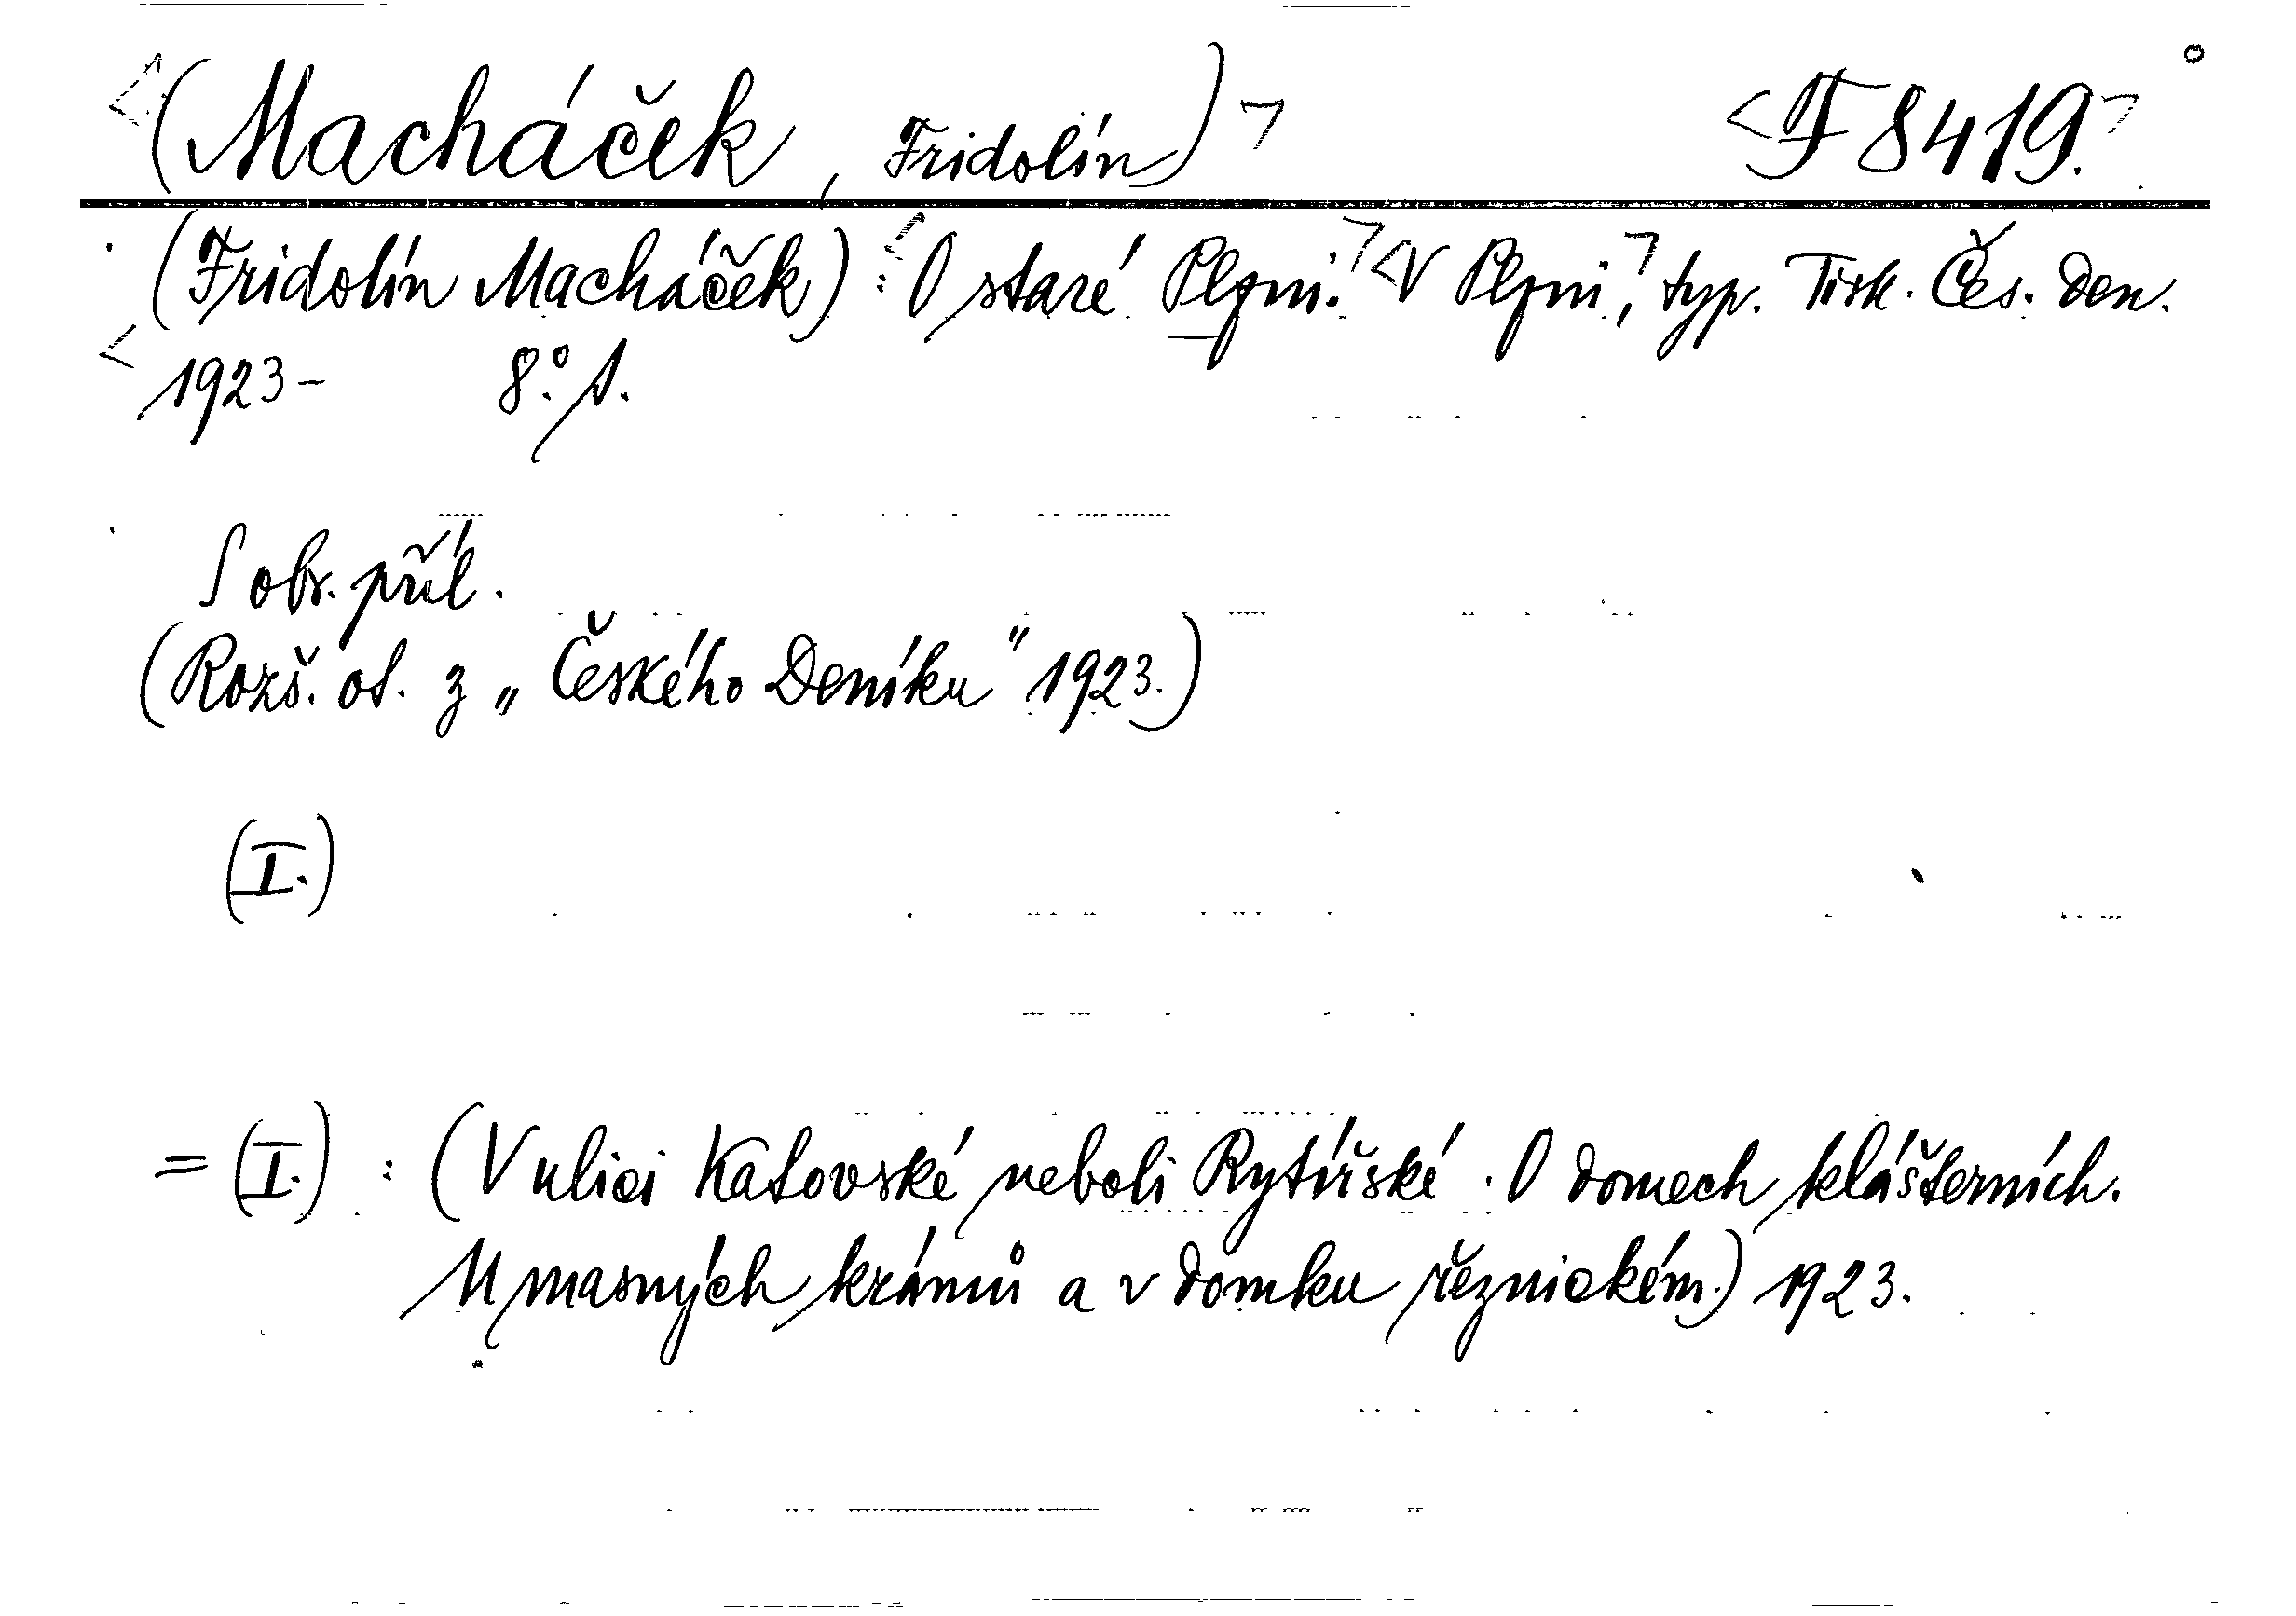 <(Macháček, Fridolín)> <F 8419.>
(Fridolín Macháček): <O staré Plzni.> <V Plzni,> typ. Tisk. Čes. Den.
<1923- 8°. s.
S obr. příl.
(Rozš. ot. z „Českého Deníku" 1923.)
(I.)
= (I.) : (V ulici Katovské neboli Rytířské. O domech klášterních.
U masných krámů a v domku řeznickém.) 1923.